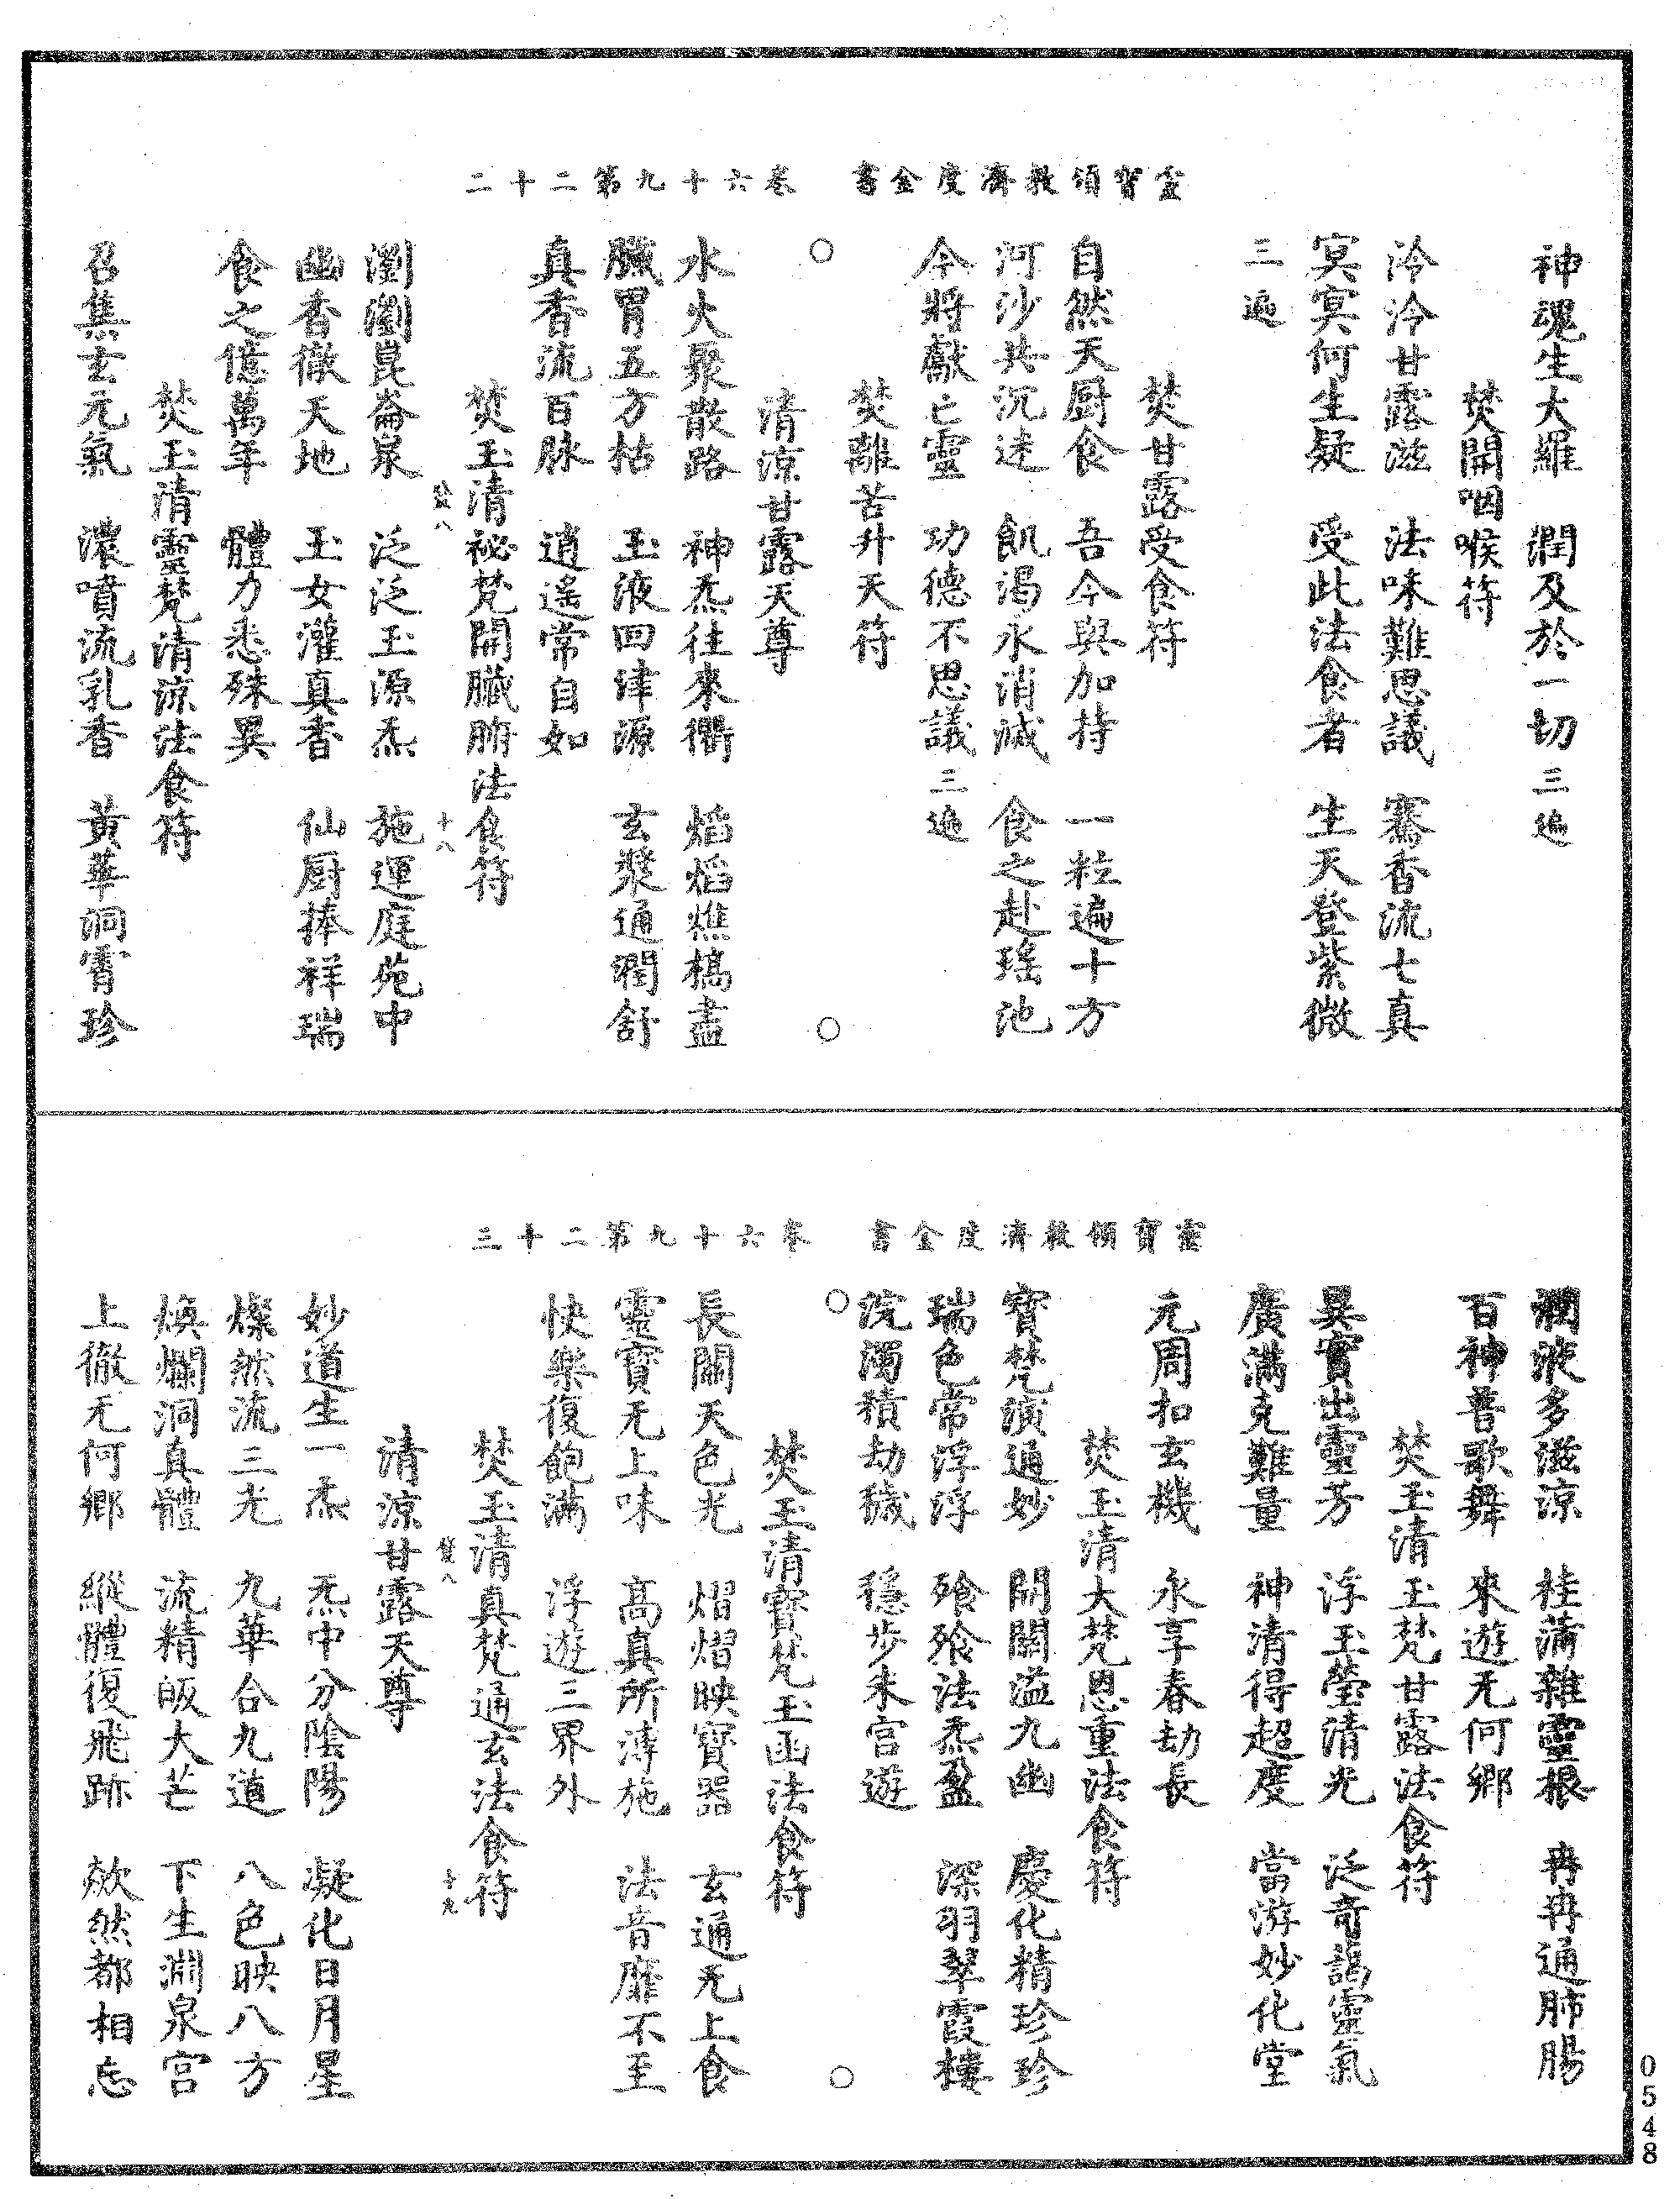 靈寶領教濟度金書　卷六十九第二十二
神魂生大羅　潤及於一切三遍
焚開咽喉符
泠泠甘露滋　法味難思議　騫香流七真
冥冥何生疑　受此法食者　生天登紫微
三遍
焚甘露受食符
自然天厨食　吾今與加持　一粒遍十方
河沙共沉迷　飢渴永消滅　食之赴瑤池
今將獻亡靈　功德不思議三遍
焚離苦升天符
○　○
清涼甘露天尊
水火聚散路　神炁往來衢　焰焰燋槁盡
臟胃五方枯　玉液回津源　玄漿通潤舒
真香流百脉　逍遙常自如
焚玉清祕梵開臟腑法食符
十八
瀏瀏崑崙泉　泛泛玉源炁　施運庭苑中
幽香徹天地　玉女灌真香　仙厨捧祥瑞
食之億萬年　體力悉殊異
焚玉清靈梵清涼法食符
召集玄元氣　濃噴流乳香　黃華洞霄珍
靈寶領教濟度金書　卷六十九第二十三
潤液多滋涼　桂蒲雜靈根　冉冉通肺腸
百神普歌舞　來遊无何鄉
焚玉清玉梵甘露法食符
異實出靈芳　浮玉瑩清光　泛奇謁靈氣
廣滿克難量　神清得超度　當游妙化堂
元周扣玄機　永享春劫長
焚玉清大梵恩重法食符
寶梵演通妙　開關溢九幽　慶化精珍珍
瑞色常浮浮　飱飱法炁盈　深羽翠霞樓
浣濁積劫穢　穩步朱宮遊
○　○
焚玉清寶梵玉函法食符
長關天色光　熠熠映寶器　玄通无上食
靈寶无上味　高真所溥施　法音靡不至
快樂復飽滿　浮遊三界外
焚玉清真梵通玄法食符
十九
清涼甘露天尊
妙道生一炁　炁中分陰陽　凝化日月星
燦然流三光　九華合九道　八色映八方
煥爛洞真體　流精皈大芒　下生淵泉宮
上徹无何鄉　縱體復飛跡　歘然都相忘
0548